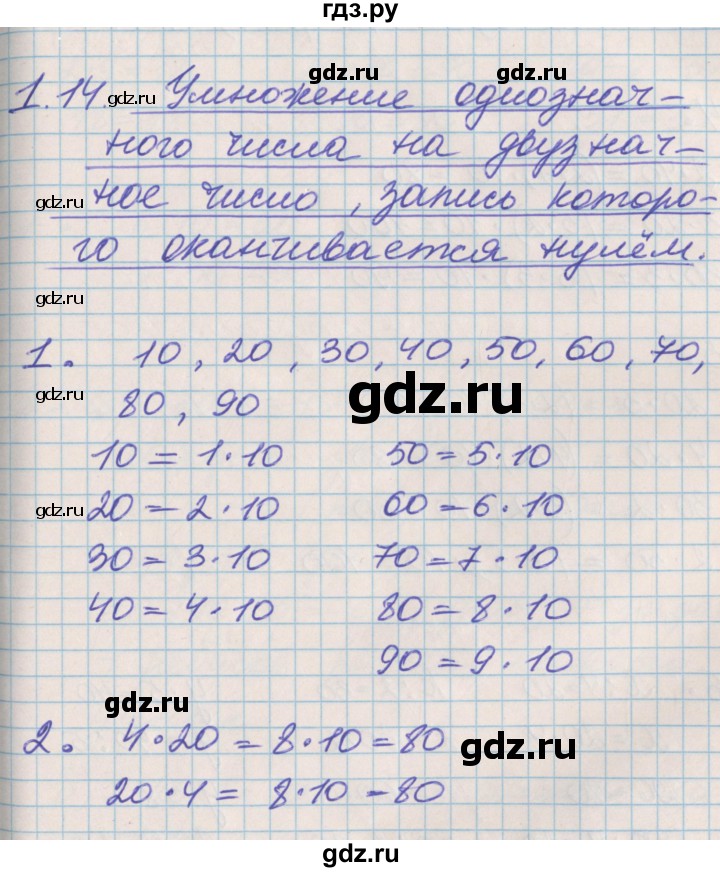 гдз.ру
gdz.ru gdz.ru
1.14. Умножение однознач-
gdz.ru
ного числа на двузнач-
gdz.ru ное число, запись которо-
го оканчивается нулём.
gdz.ru
1. 10, 20, 30, 40, 50, 60, 70,
gdz.ru 80, 90 gdz.ru
10 = 1·10 50 = 5·10
gdz.ru 20 = 2·10 60 = 6·10
30 = 3·10 70 = 7·10
40 = 4·10 80 = 8·10
90 = 9·10
gdz.ru
2. 4·20 = 8·10 = 80 gdz.ru
20·4 = 8·10 = 80
gdz.ru